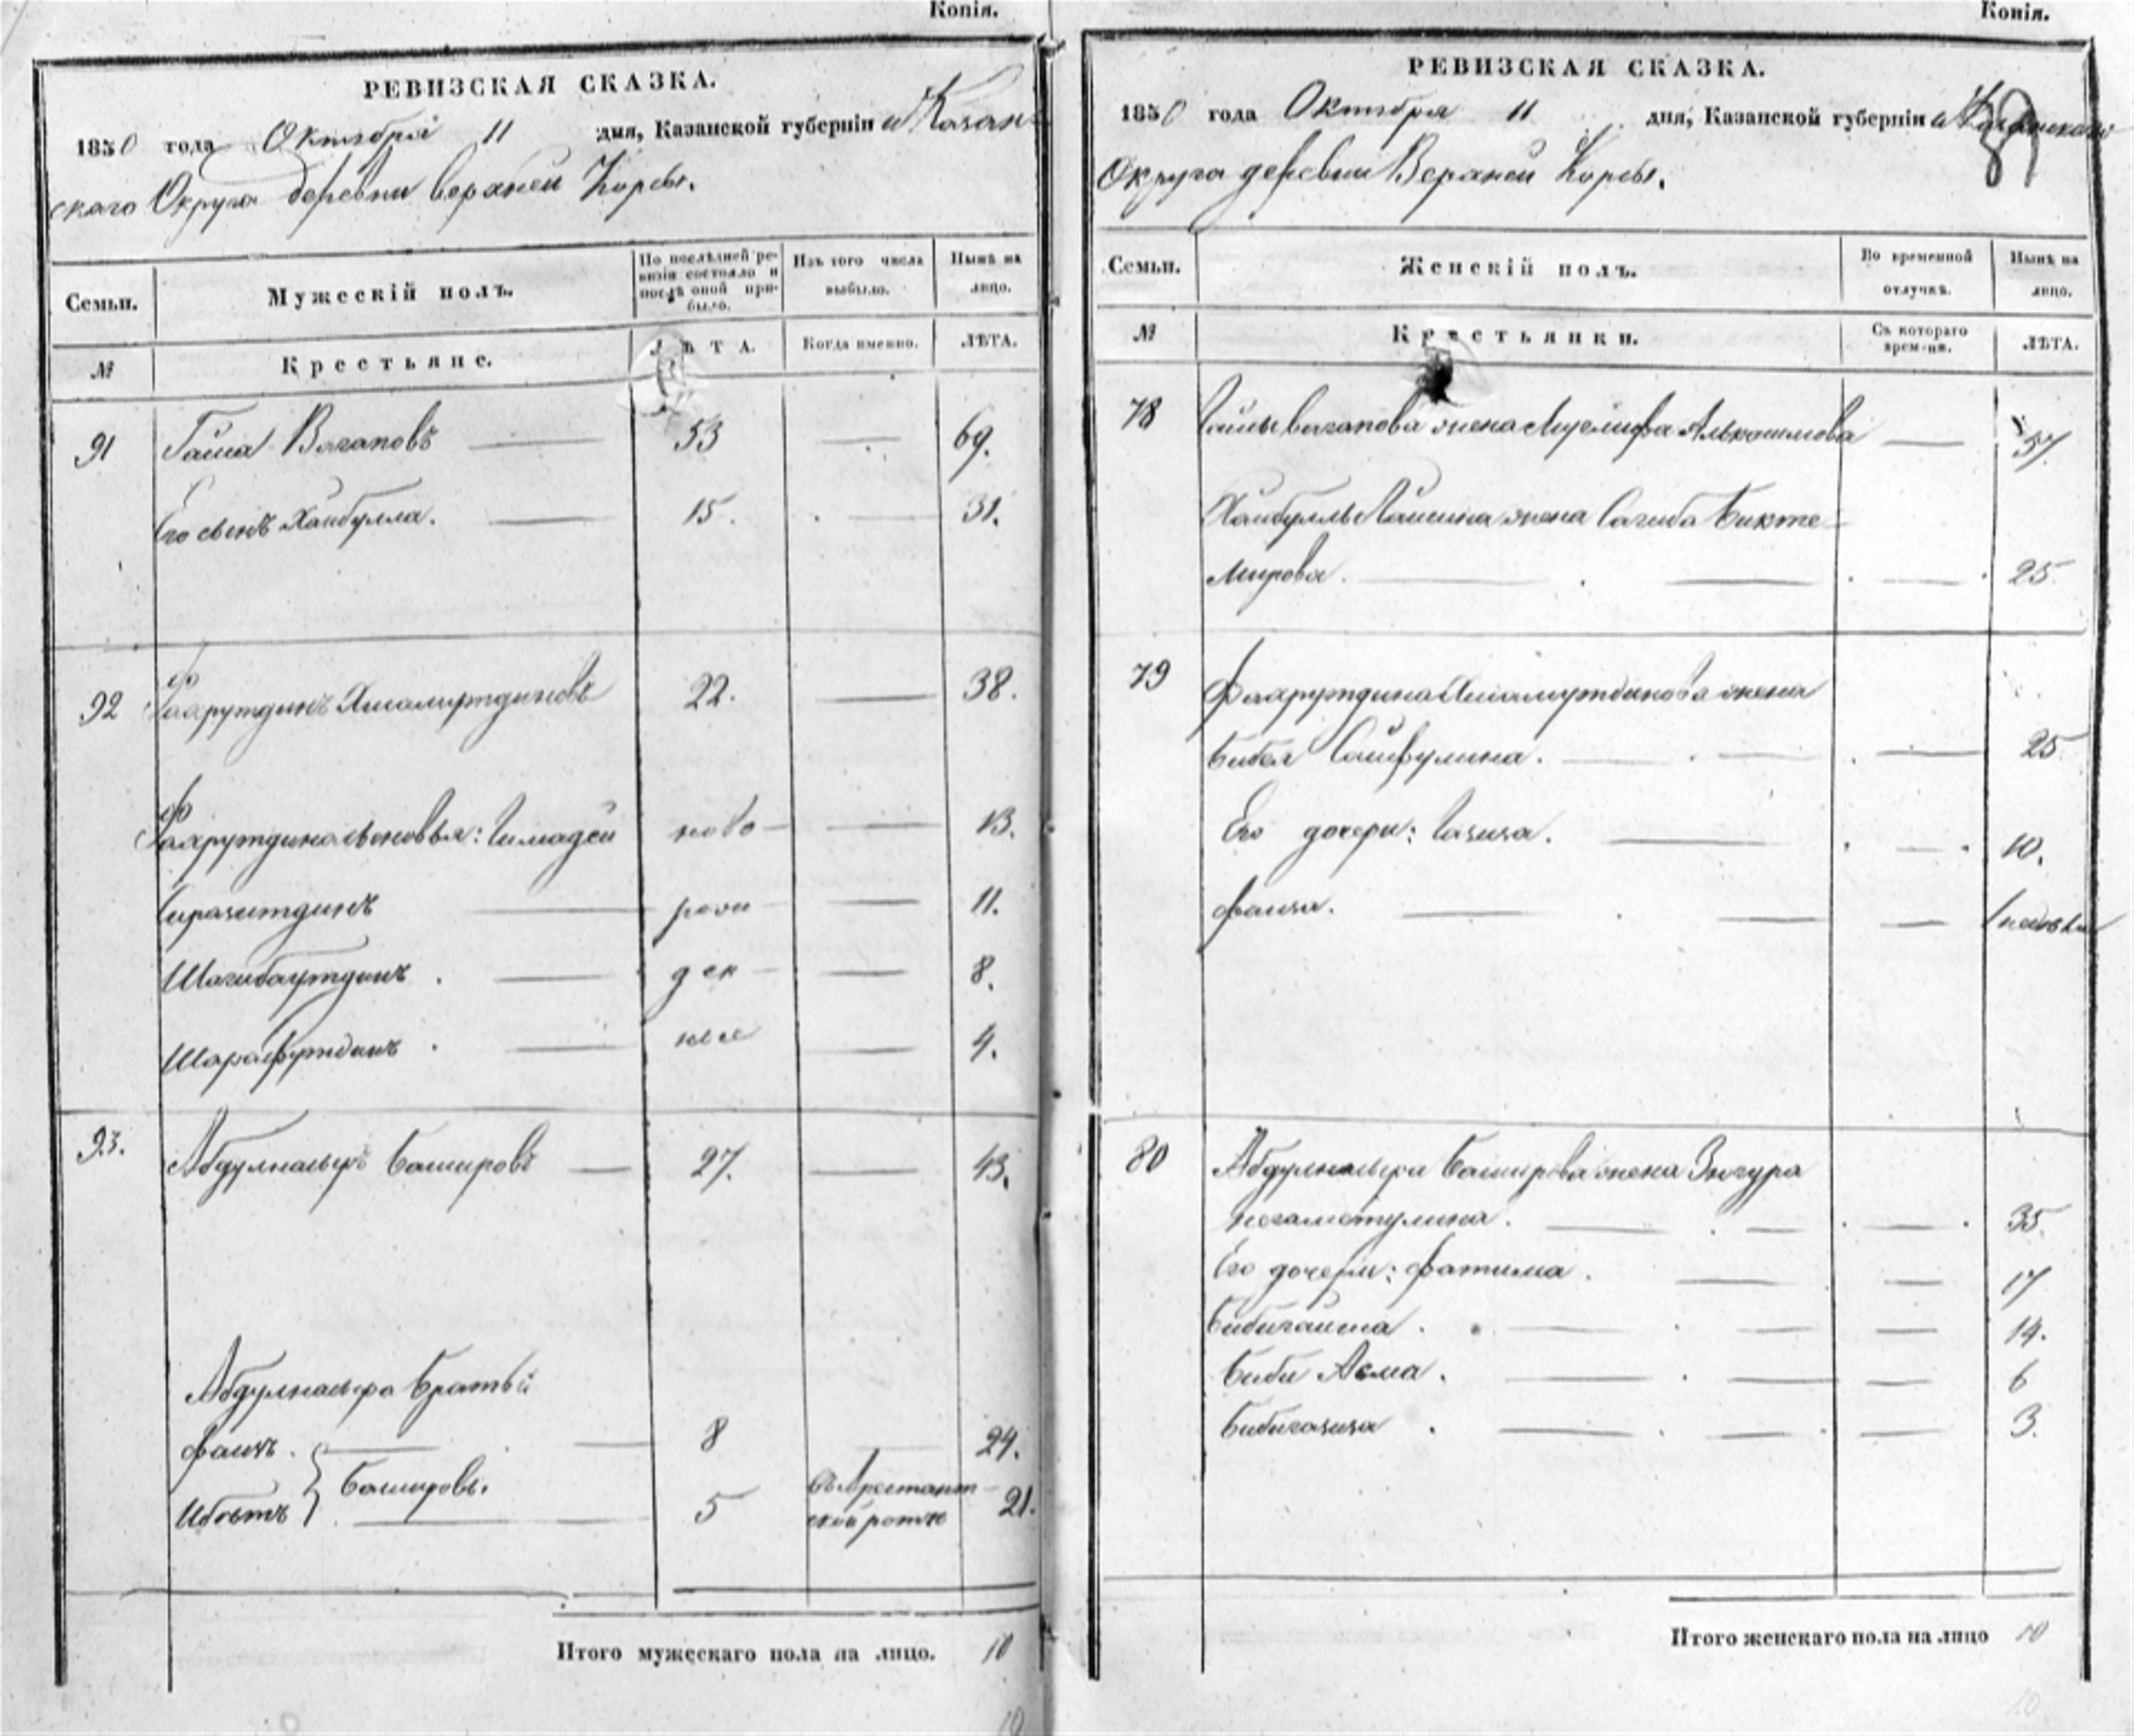 Копія.
РЕВИЗСКАЯ СКАЗКА.
1850 года Октября 11 дня, Казанской губерніи и Казан-
скаго Округа деревни верхней Корсы.
Семьи. Мужескій полъ. По послѣдней ревизіи состояло и послѣ оной прибыло. Изъ того числа выбыло. Нынѣ на лицо.
№ Крестьяне. ЛѢТА. Когда именно. ЛѢТА.
91 Гайша Вагаповъ 53 69.
Его сынъ Хайбулла. 15. 31.
92 Фахрутдинъ 22. 38.
Фахрутдина сыновья: Гимадей ново 13.
Сиразитдинъ рож 11.
Шагибаутдинъ ден 8.
Шарафутдинъ ные 4.
93. Башировъ 27. 43.
братья
Фаизъ. 8 24.
Башировы.
5 въ Арестантской ротѣ 21.
Итого мужескаго пола на лицо. 10
Копія.
РЕВИЗСКАЯ СКАЗКА.
1850 года Октября 11 дня, Казанской губерніи и Казанскаго
Округа деревни Верхней Корсы.
Семьи. Женскій полъ. Во временной отлучкѣ. Нынѣ на лицо.
№ Крестьянки. Съ котораго времени. ЛѢТА.
78 Гайши вагапова жена 57
Хайбуллы Гайшина жена Сагида Бикте-
мирова. 25
79 Фахрутдина жена
Биби Сайфулина. 25
Его дочери: Газиза. 10.
Фаиза.
80 Баширова жена Зюгура
35.
Его дочери: Фатима. 17
Бибигайша. 14.
Биби Асма. 6
Бибигазиза 3.
Итого женскаго пола на лицо 10